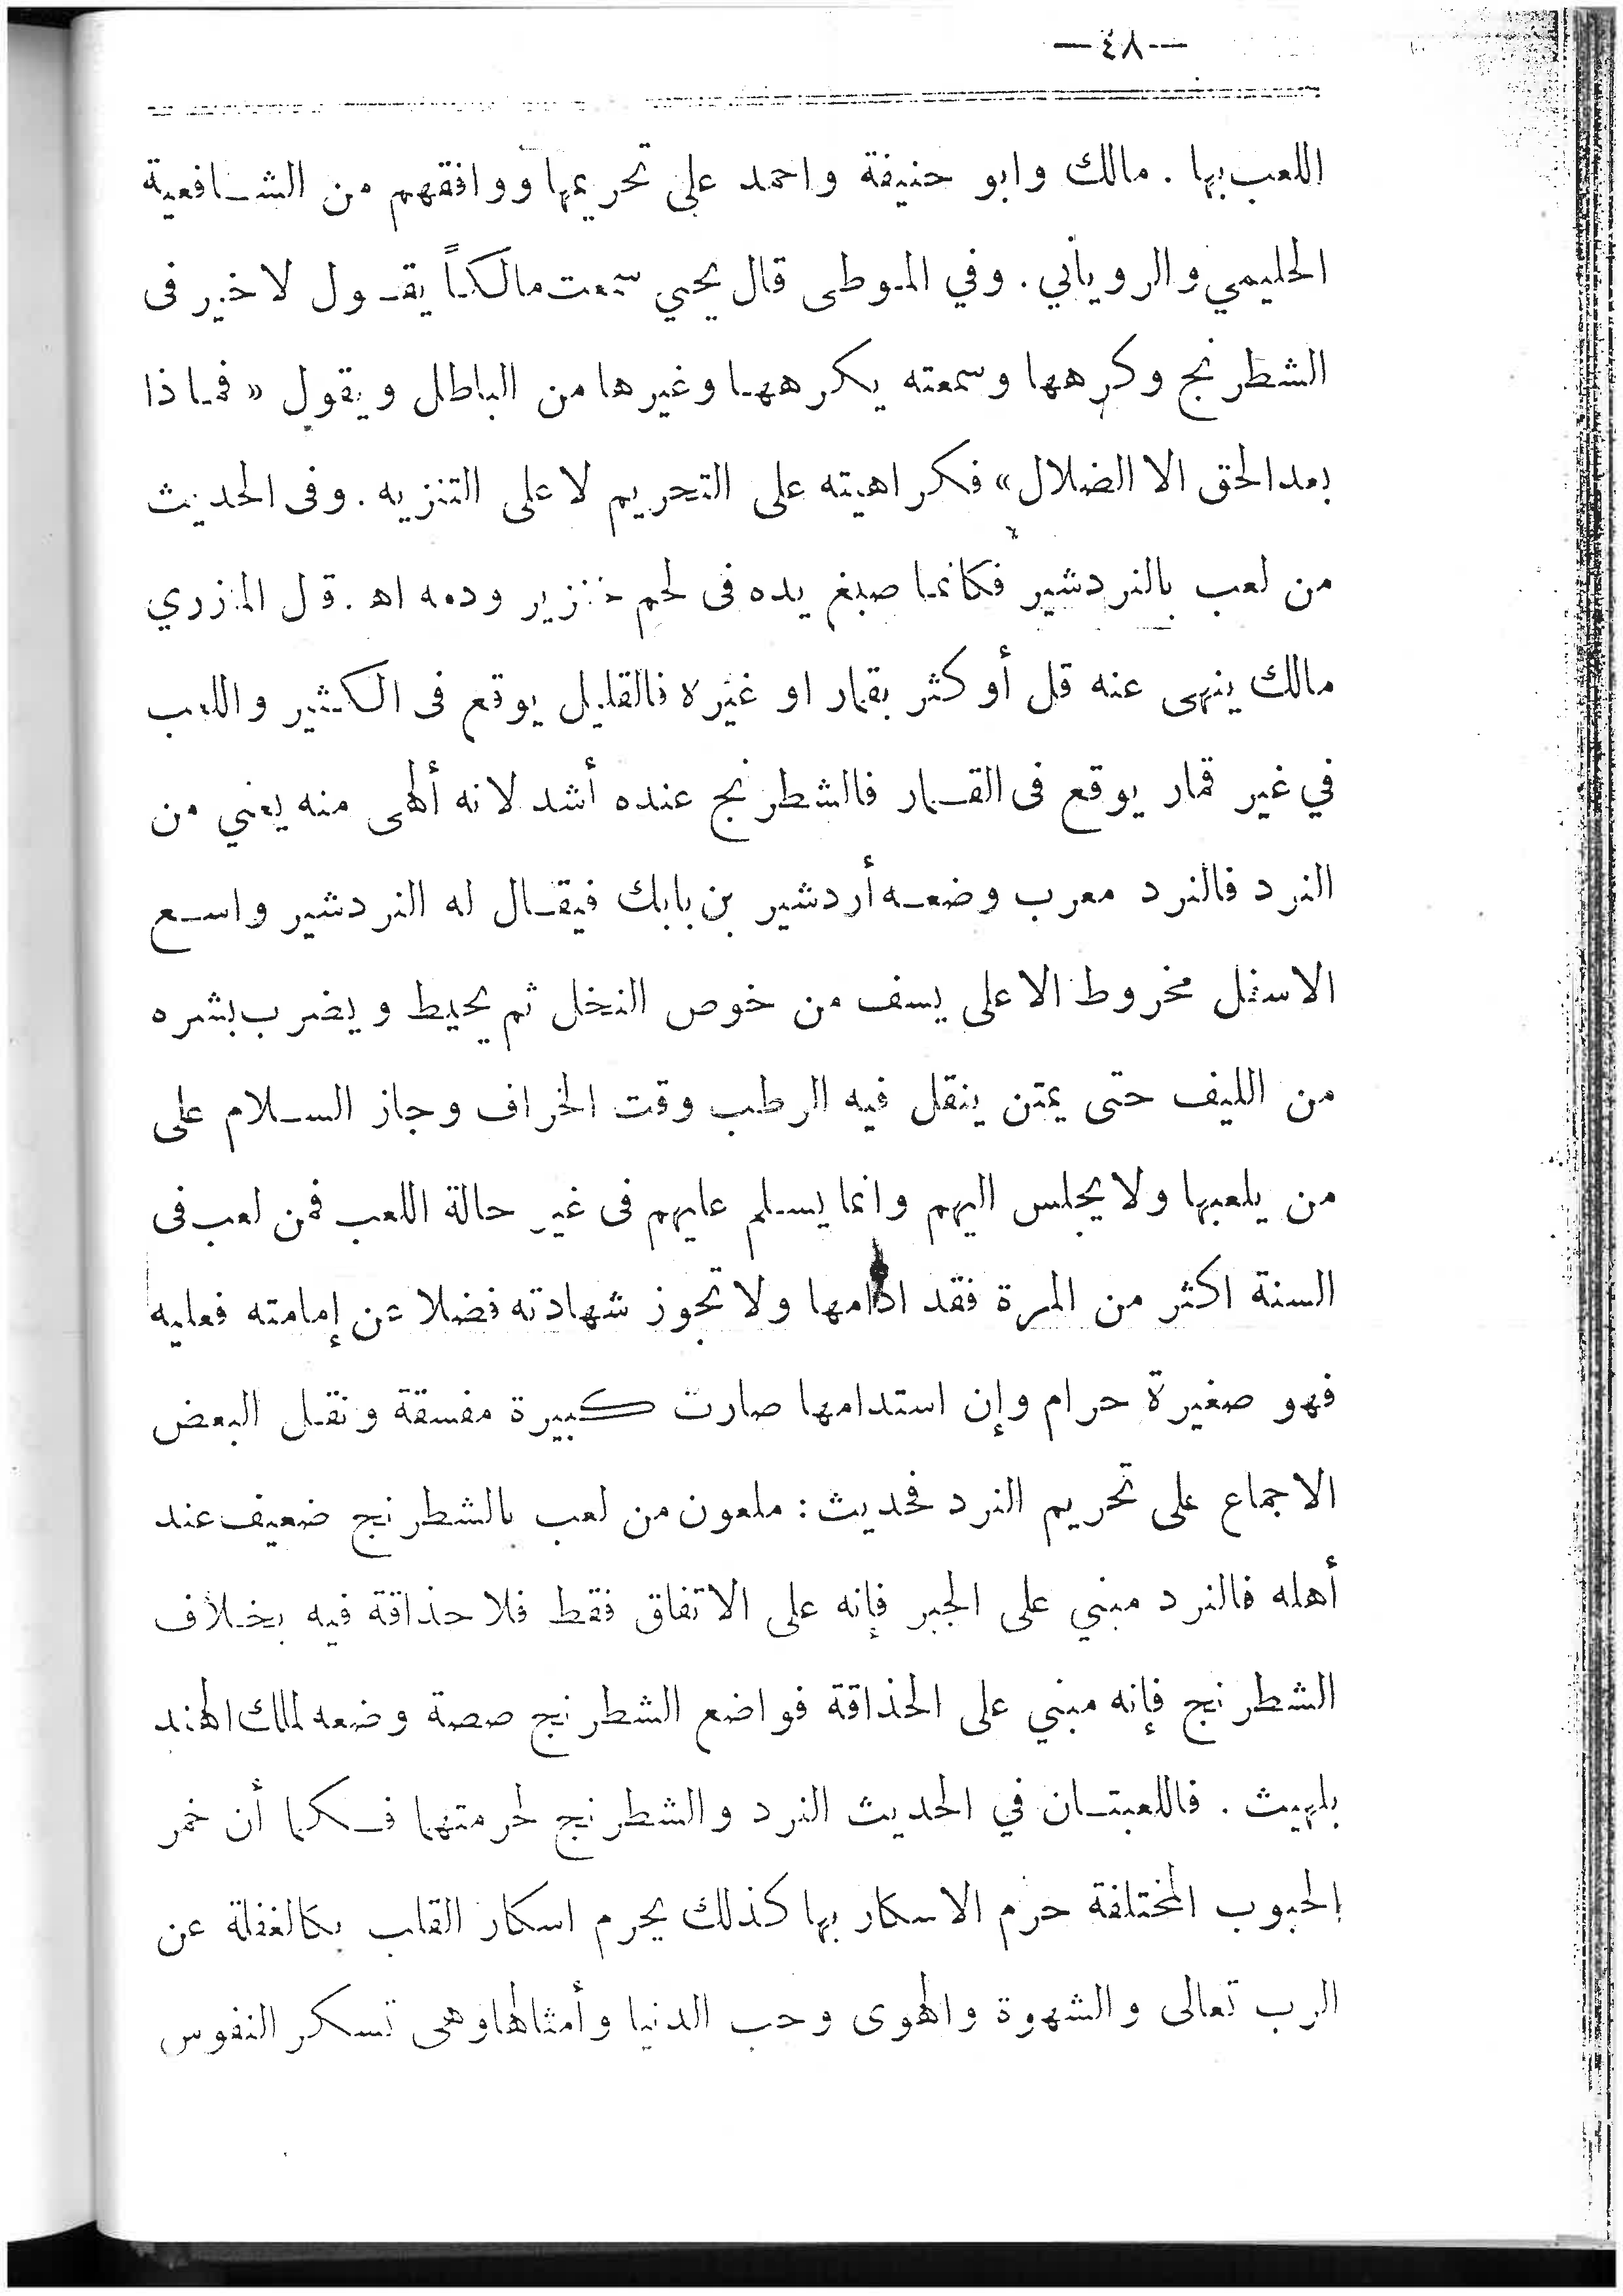 —٤٨—
اللعب بها . مالك وابو حنيفة واحمد على تحريمها ووافقهم من الشافعية
الحليمي والروياني . وفي الموطى قال يحيي سمعت مالكاً يقول لا خير فى
الشطرنج وكرهها وسمعته يكرهها وغيرها من الباطل ويقول « فماذا
بعد الحق الا الضلال» فكراهيته على التحريم لا على التنزيه . وفى الحديث
من لعب بالنردشير فكانما صبغ يده فى لحم خنزير ودمه اه . قل المازري
مالك ينهى عنه قل أو كثر بقمار او غيره فالقليل يوقع فى الكثير واللعب
في غير قمار يوقع فى القمار فالشطرنج عنده أشد لانه ألهى منه يعني من
النرد فالنرد معرب وضعه أردشير بن بابك فيقال له النردشير واسع
الاسفل مخروط الاعلى يسف من خوص النخل ثم يحيط ويضرب بشره
من الليف حتى يمتن ينقل فيه الرطب وقت الخراف وجاز السلام على
من يلعبها ولا يجلس اليهم وانما يسلم عليهم فى غير حالة اللعب فمن لعب فى
السنة اكثر من المرة فقد ادامها ولا تجوز شهادته فضلا عن إمامته فعليه
فهو صغيرة حرام وإن استدامها صارت كبيرة مفسقة ونقل البعض
الاجماع على تحريم النرد فحديث : ملعون من لعب بالشطرنج ضعيف عند
أهله فالنرد مبني على الجبر فإنه على الاتفاق فقط فلا حذاقة فيه بخلاف
الشطرنج فإنه مبني على الحذاقة فواضع الشطرنج صصة وضعه لملك الهند
بلهيث . فاللعبتان في الحديث النرد والشطرنج لحرمتهما فكما أن خمر
الحبوب المختلفة حرم الاسكار بها كذلك يحرم اسكار القلب بكالغفلة عن
الرب تعالى والشهوة والهوى وحب الدنيا وأمثالها وهى تسكر النفوس